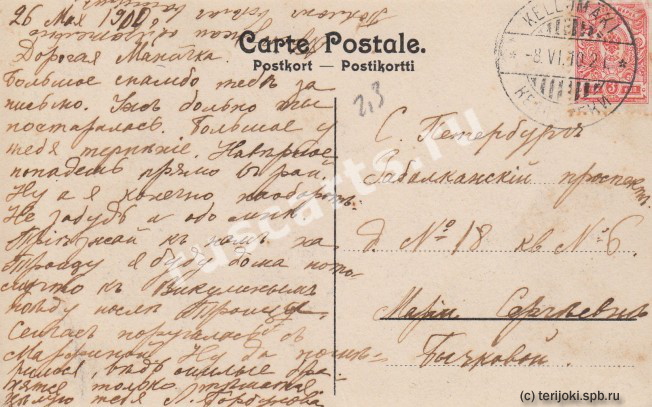 26 Мая 19
Дорогая Маничка.
Большое спасибо тебѣ за
письмо. Ужъ больно ты
постаралась. Большое у
тебя терпѣніе. Навѣрное
попадешь прямо въ рай.
Ну а я конечно наоборотъ.
Не забудь и обо мнѣ.
Пріѣзжай къ намъ на
Троицу я буду дома пото
му что къ Викулинымъ
поѣду послѣ Троицы
Сейчасъ поругалась съ
Ну да
милые бра
нятся только тѣшатся
цѣлую тебя Л. Горбунова
Carte Postale.
Postkort — Postikortti
2,3
KELLOMÄKI
-8.VI.10.21
КЕЛЛОМЯКИ
3
С. Петербургъ
Забалканскій проспектъ
д. № 18 кв № 6.
Маріи Сергѣевнѣ
Бычковой.
ruscarts.ru
(c) terijoki.spb.ru